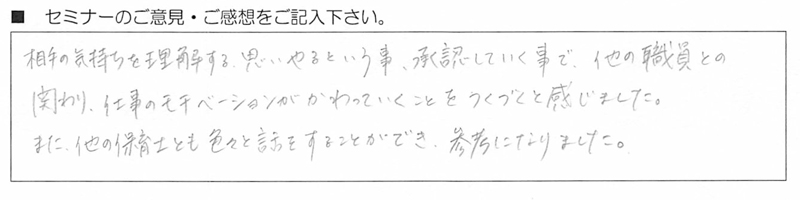 ■ セミナーのご意見・ご感想をご記入下さい。
相手の気持ちを理解する、思いやるという事、承認していく事で、他の職員との
関わり、仕事のモチベーションがかわっていくことをつくづくと感じました。
また、他の保育士とも色々と話をすることができ、参考になりました。